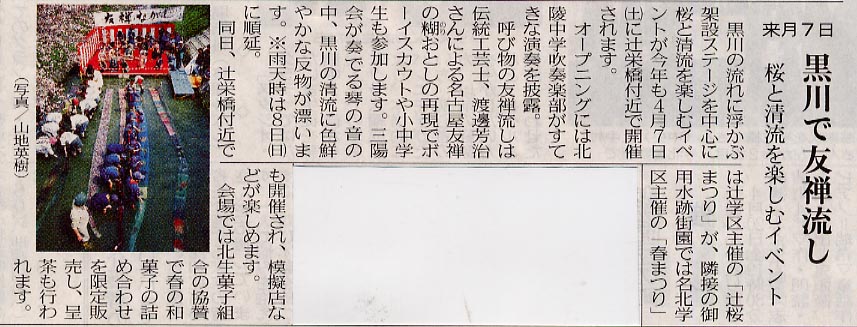 来月7日
黒川で友禅流し
桜と清流を楽しむイベント
黒川の流れに浮かぶ
架設ステージを中心に
桜と清流を楽しむイベ
ントが今年も4月7日
(土)に辻栄橋付近で開催
されます。
オープニングには北
陵中学吹奏楽部がすて
きな演奏を披露。
呼び物の友禅流しは
伝統工芸士、渡邊芳治
さんによる名古屋友禅
の糊おとしの再現でボ
ーイスカウトや小中学
生も参加します。三陽
会が奏でる琴の音の
中、黒川の清流に色鮮
やかな反物が漂いま
す。※雨天時は8日(日)
に順延。
同日、辻栄橋付近で
は辻学区主催の「辻桜
まつり」が、隣接の御
用水跡街園では名北学
区主催の「春まつり」
も開催され、模擬店な
どが楽しめます。
会場では北生菓子組
合の協賛
で春の和
菓子の詰
め合わせ
を限定販
売し、呈
茶も行わ
れます。
友禅ながし
(写真/山地英樹)